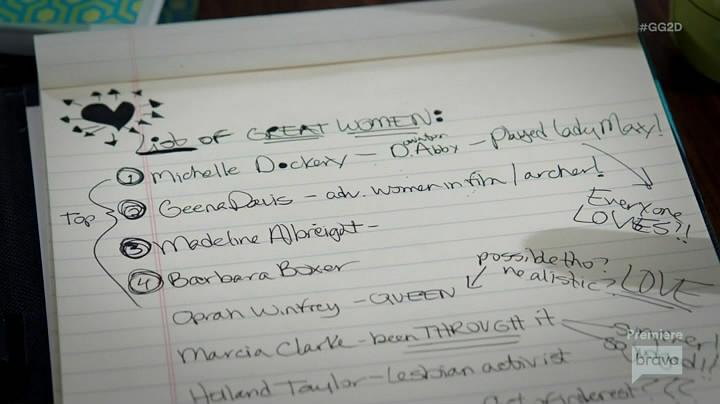 #GG2D
List OF GREAT WOMEN:
① Michelle Dockery — D. Abby — Played Lady Mary!
downton
Everyone
LOVES?!
Top
② Geena Davis - adv. women in film / archer!
③ Madeline Albreight -
④ Barbara Boxer
possible tho?
realistic? LOVE
Oprah Winfrey - QUEEN
Marcia Clarke - been THROUGH it
Summer!
Holland Taylor - Lesbian activist
interest???
Premiere
bravo